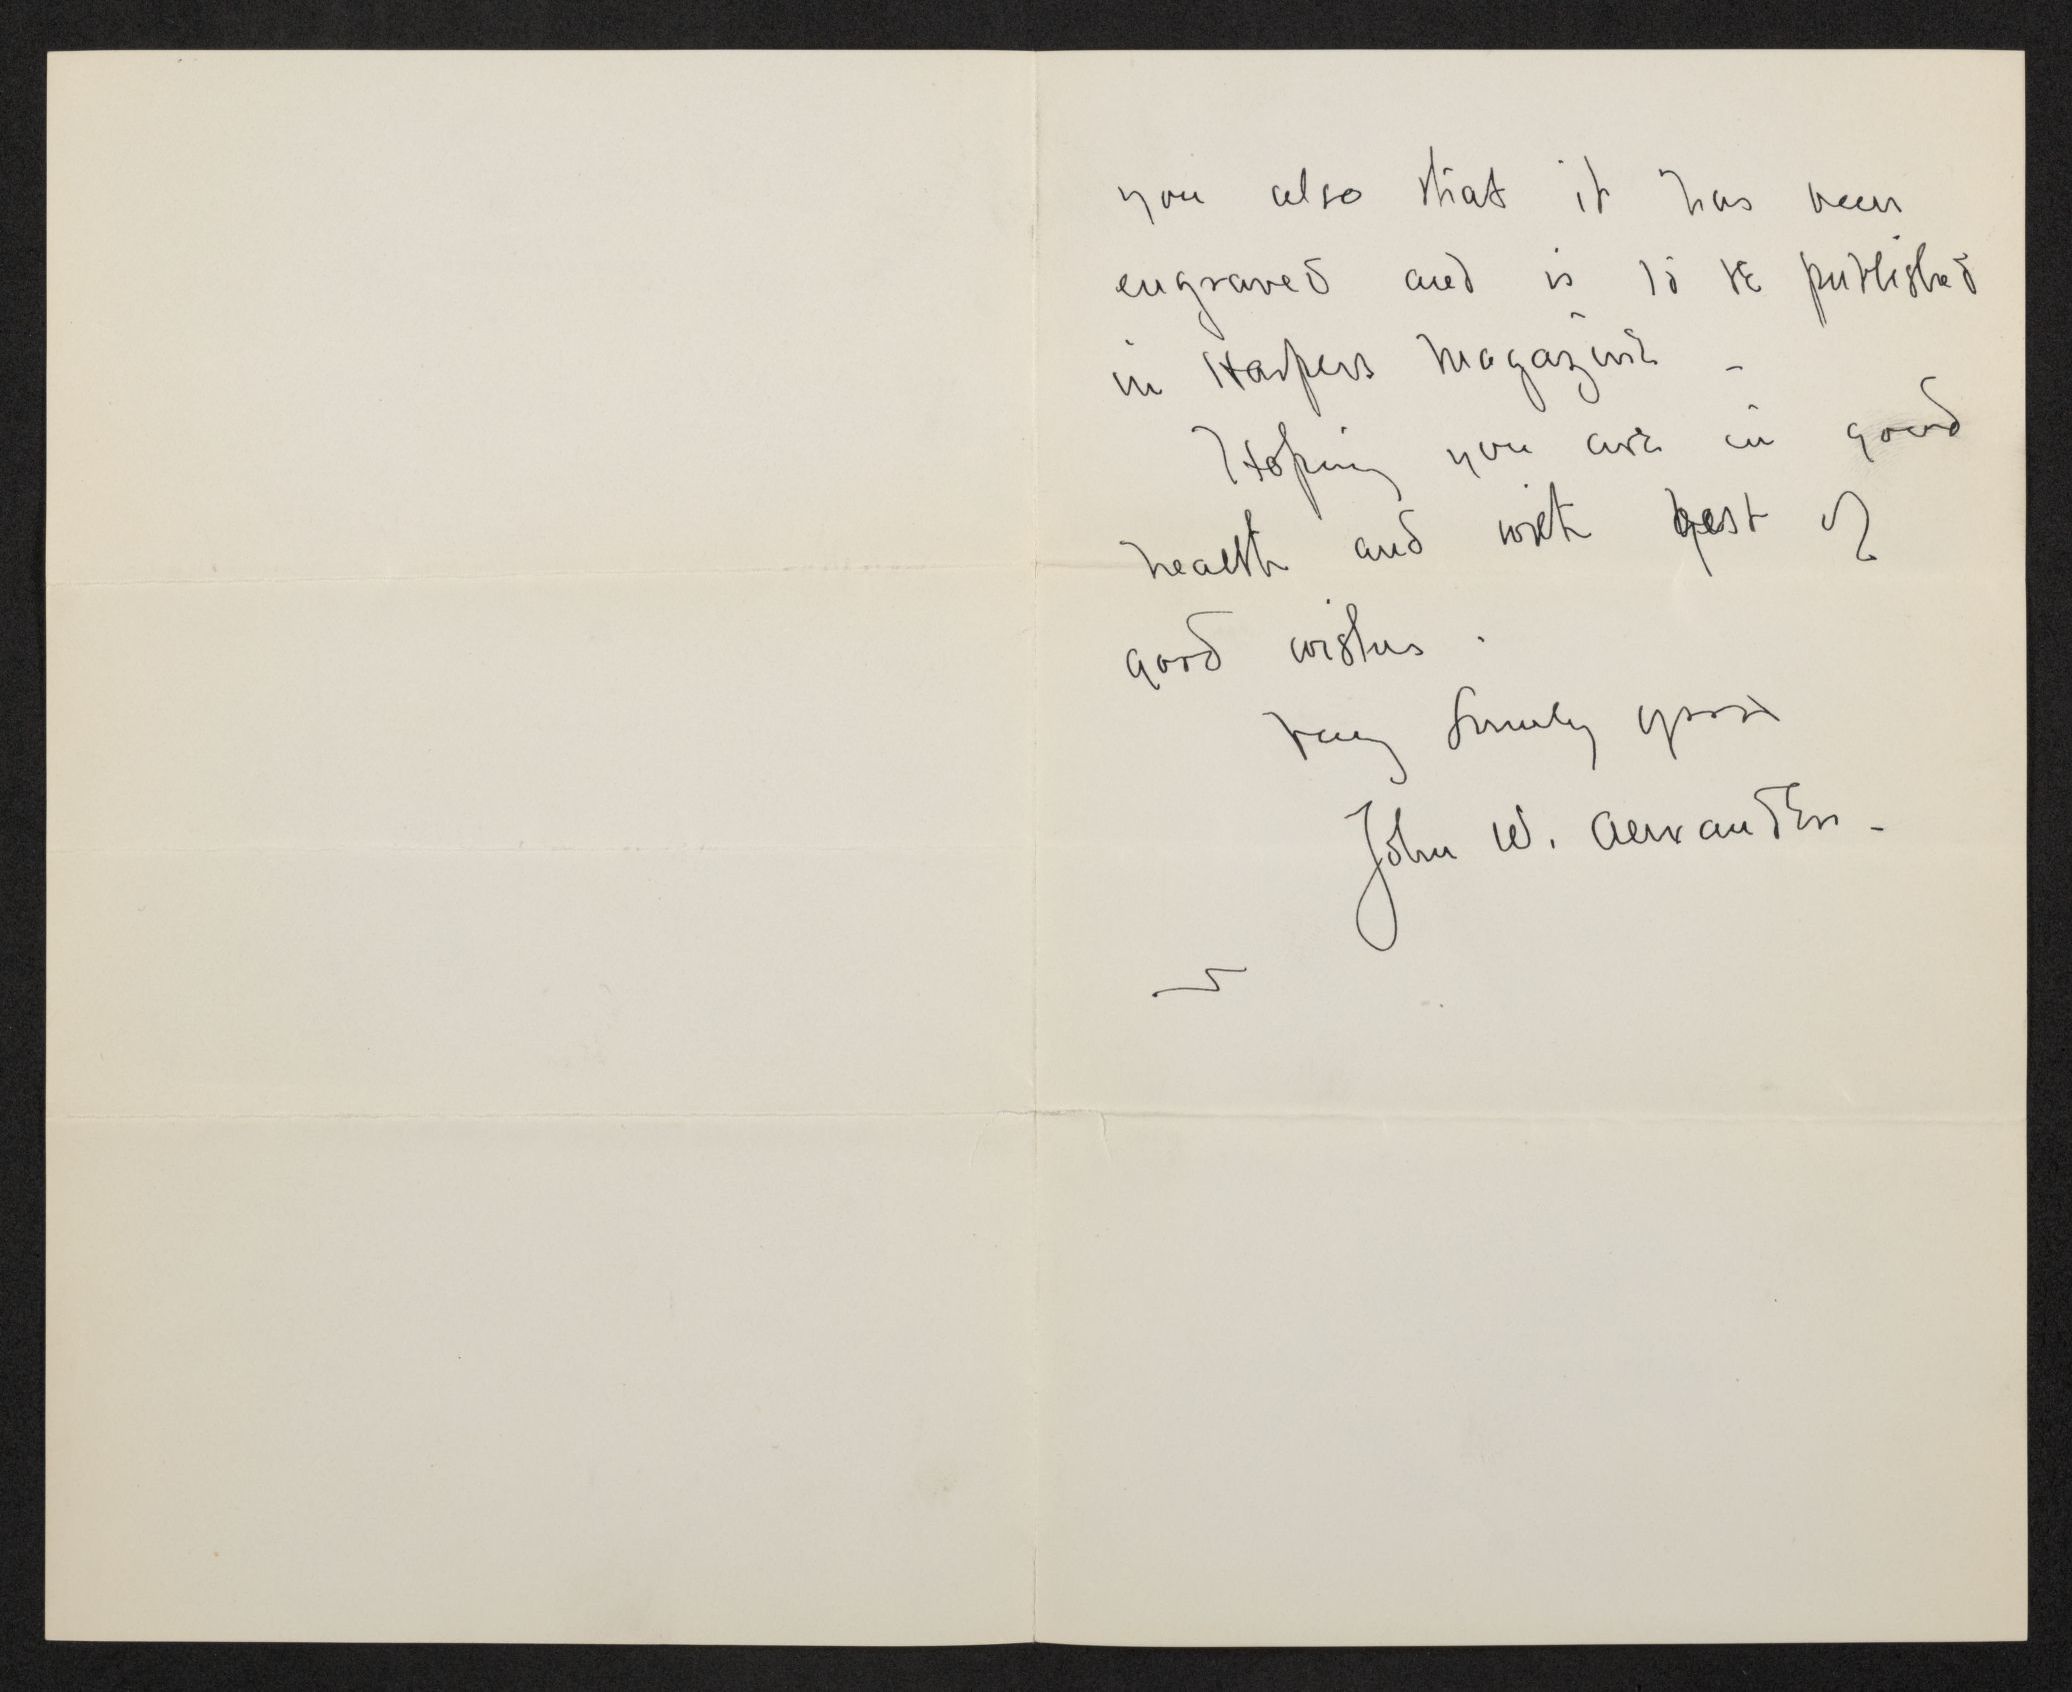 you also that it has been
engraved and is to be published
in Harpers Magazine -
Hoping you are in good
health and with best of
good wishes.
Very Sincerely yours
John W. Alexander -